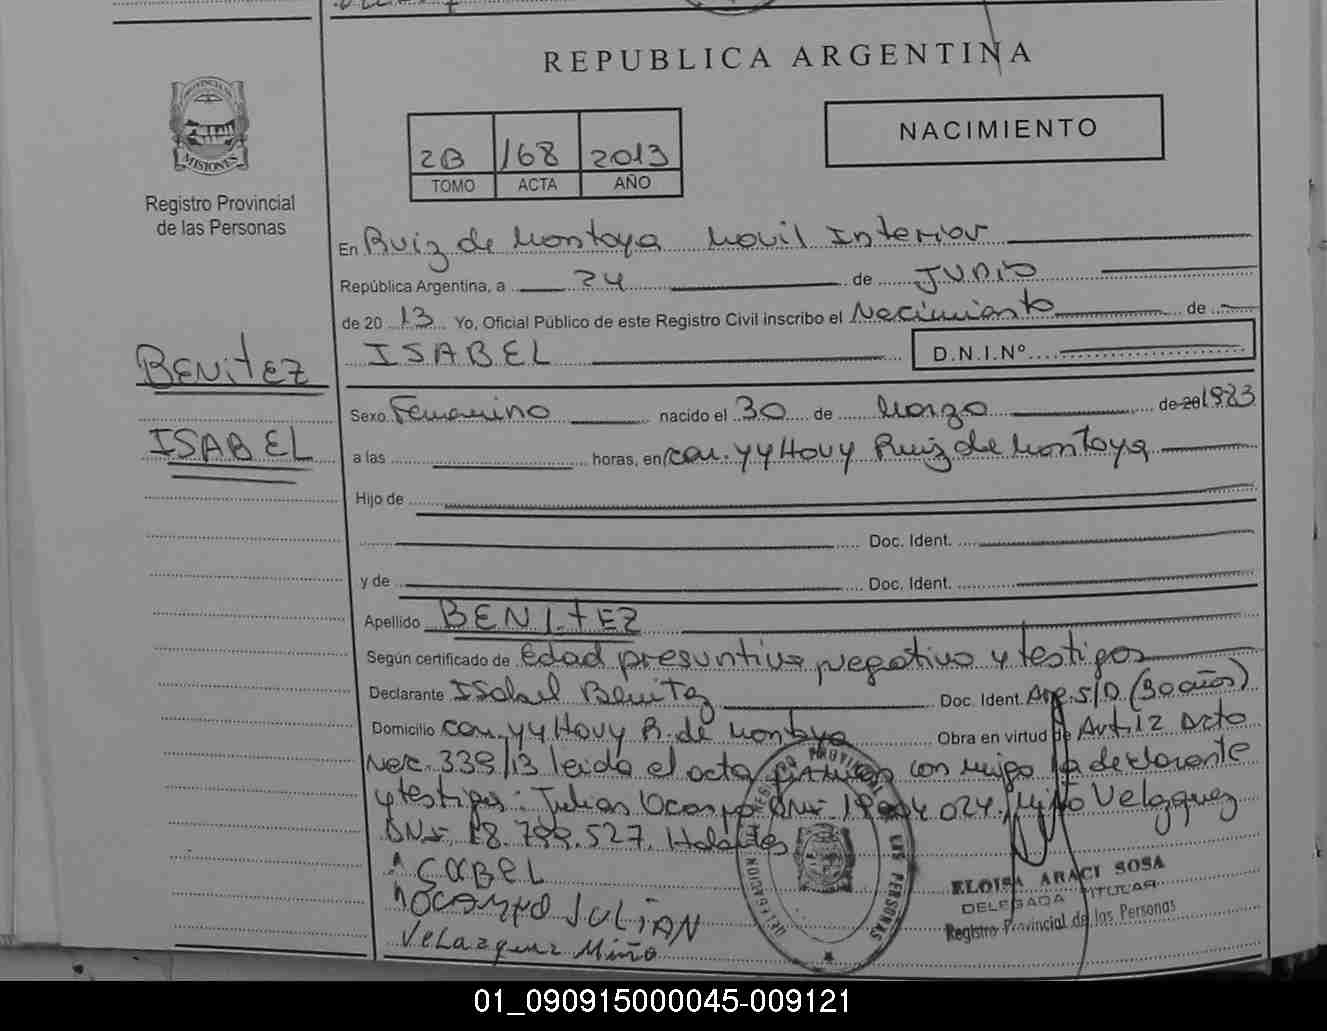 REPUBLICA ARGENTINA
PROVINCIA DE
MISIONES
Registro Provincial
de las Personas
2B 168 2013
TOMO ACTA AÑO
NACIMIENTO
En Ruiz de Montoya Movil Interior
República Argentina, a 24 de JUNIO
de 20 13 Yo, Oficial Público de este Registro Civil inscribo el Nacimiento de
ISABEL D.N.I.Nº
BENITEZ
ISABEL
Sexo Femenino nacido el 30 de Marzo de 20 1983
a las horas, en Com. yy Hovy Ruiz de Montoya
Hijo de
Doc. Ident.
y de Doc. Ident.
Apellido BENITEZ
Según certificado de Edad presuntiva negativo y testigos
Declarante Isabel Benitez Doc. Ident. Arg. S/D. (30 años)
Domicilio Com. yy Hovy R. de Montoya Obra en virtud de Art. 12 Acto
339/13 leida el acta firman con migo la declarante
y testigos: Julian Ocampo DNI Miño Velazquez
DNI 18.799.527.
ISABEL
OCAMPO JULIAN
Velazquez Miño
ELOISA ARACI SOSA
DELEGADA TITULAR
Registro Provincial de las Personas
01_090915000045-009121